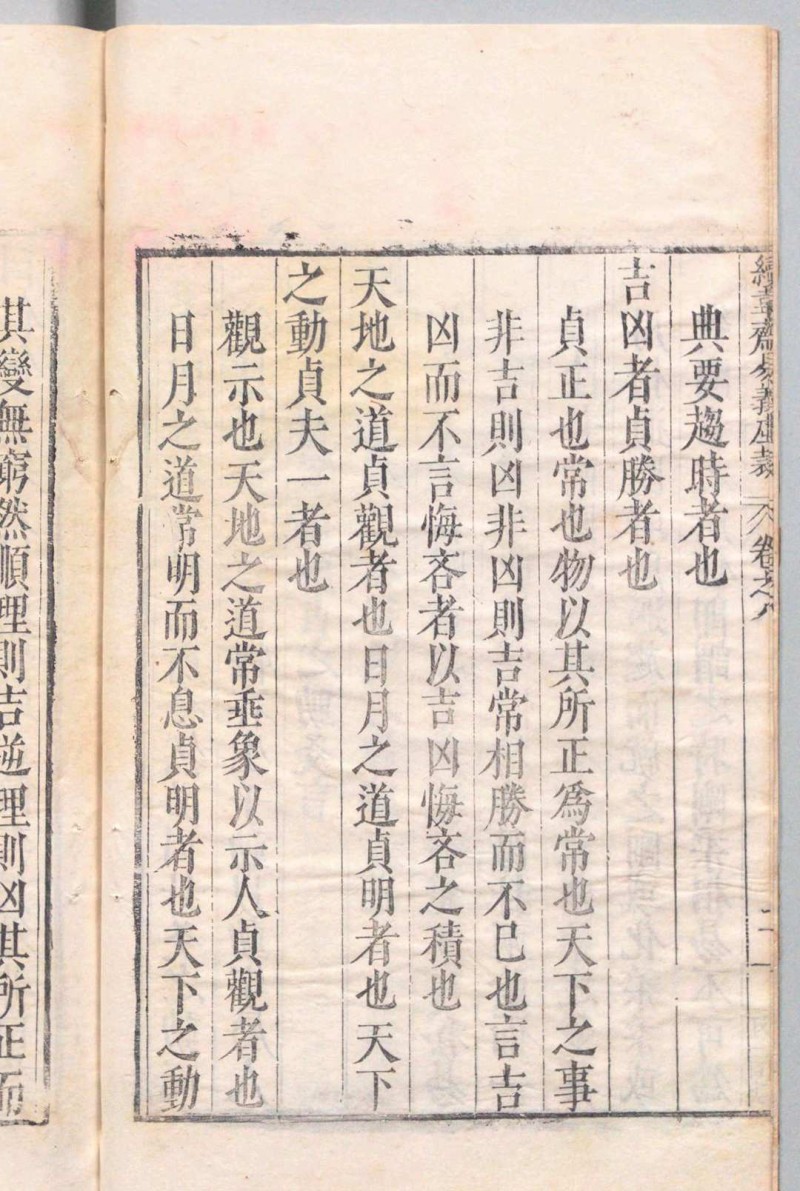 易義
卷之八
二
典要趨時者也
吉凶者貞勝者也
貞正也常也物以其所正爲常也天下之事
非吉則凶非凶則吉常相勝而不已也言吉
凶而不言悔吝者以吉凶悔吝之積也
天地之道貞觀者也日月之道貞明者也天下
之動貞夫一者也
觀示也天地之道常垂象以示人貞觀者也
日月之道常明而不息貞明者也天下之動
其變無窮然順理則吉逆理則凶其所正而